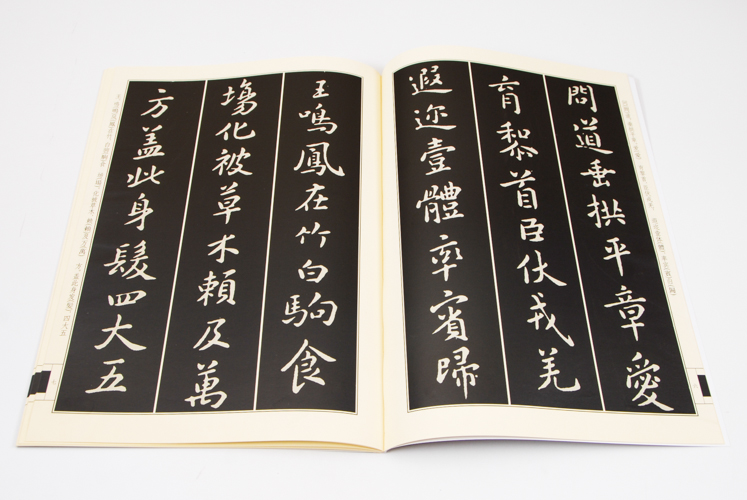 問道垂拱平章愛
育黎首臣伏戎羌
遐迩壹體率賓歸
王鳴鳳在竹白駒食
場化被草木頼及萬
方盖此身髮四大五